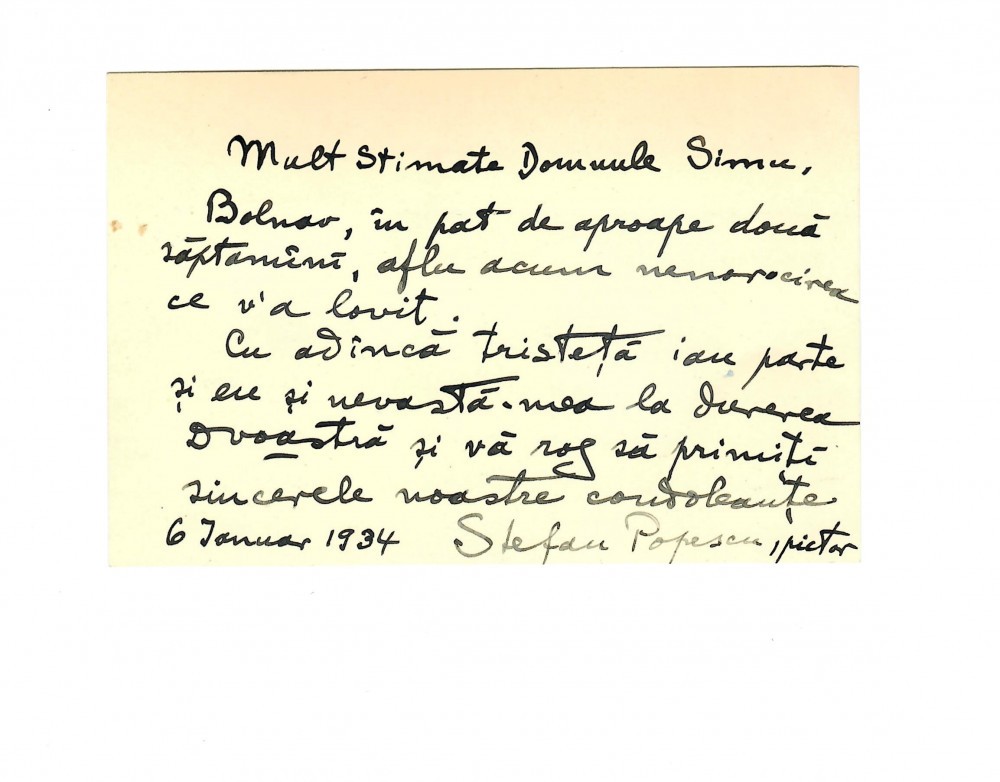 Mult Stimate Domnule Simu,
Bolnav, în pat de aproape două
săptămînî, aflu acum nenorocirea
ce v'a lovit.
Cu adîncă tristeță iau parte
și eu și nevastă-mea la durerea
Dvoastră și vă rog să primiți
sincerele noastre condoleanțe
6 Ianuar 1934 Stefan Popescu, pictor